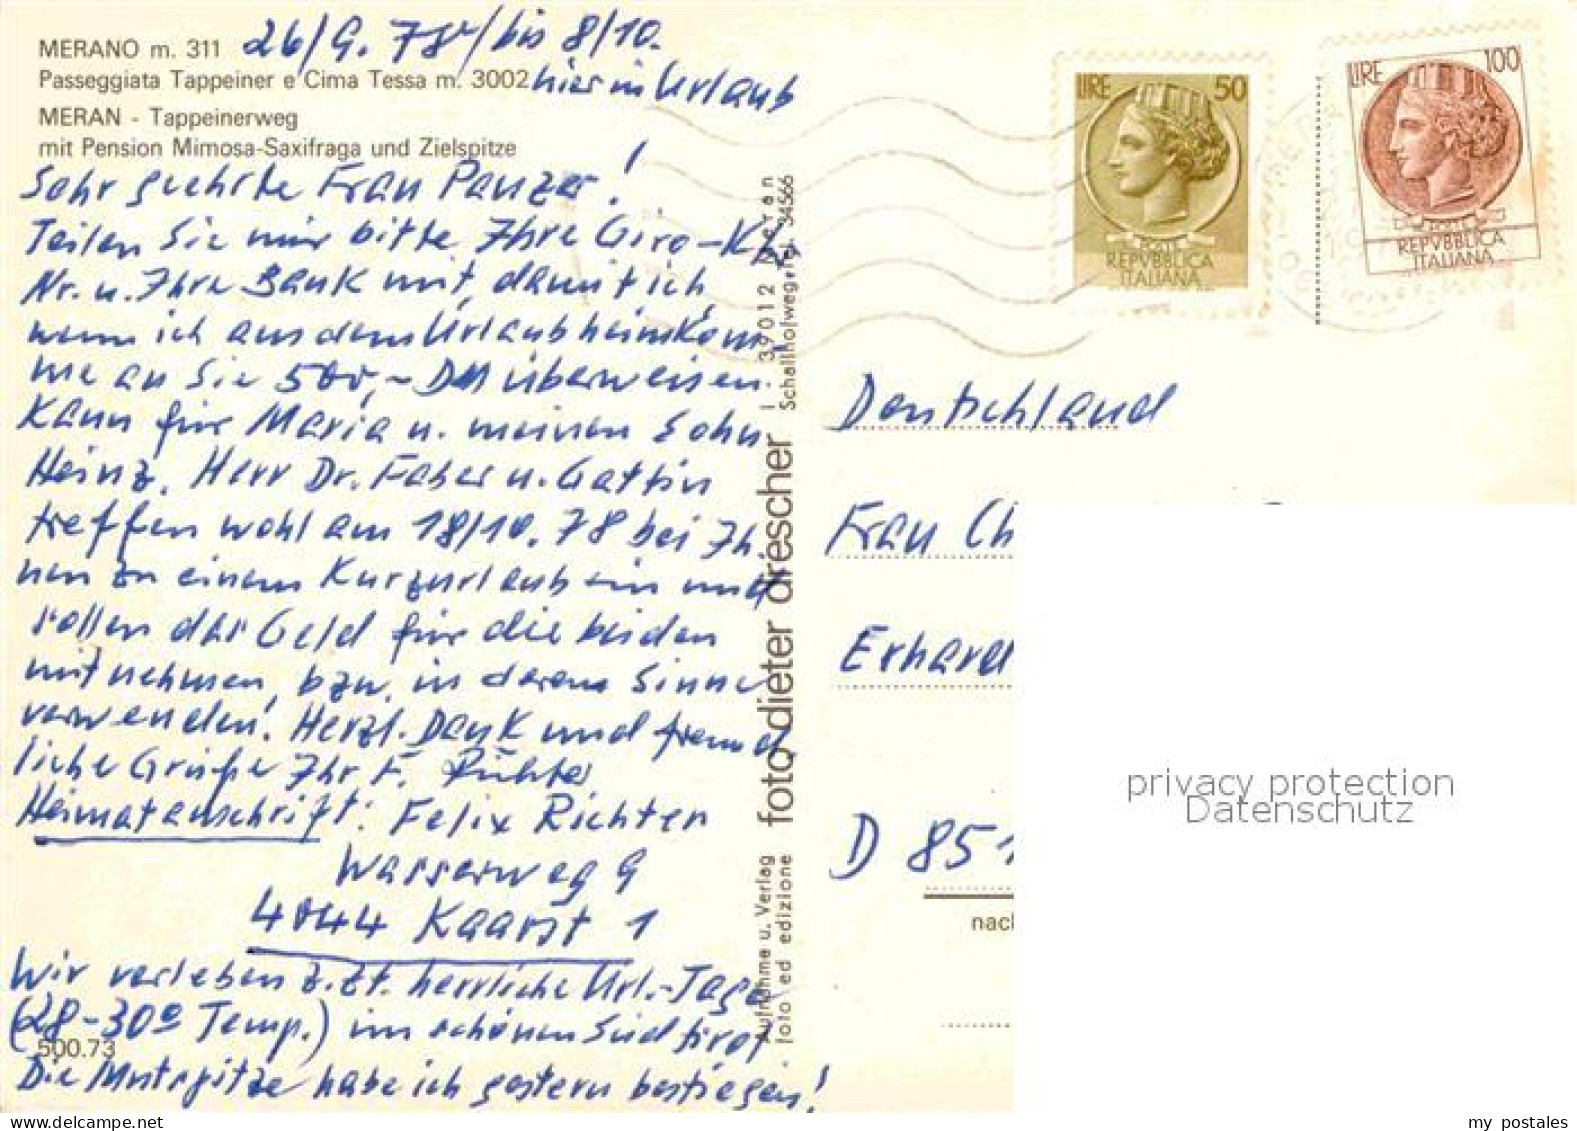 MERANO m. 311 26/9. 78 / bis 8/10.
Passeggiata Tappeiner e Cima Tessa m. 3002 hier in Urlaub
MERAN - Tappeinerweg
mit Pension Mimosa-Saxifraga und Zielspitze
Sehr geehrte Frau Panzer!
Teilen Sie mir bitte Ihre Giro-Kt.
Nr. u. Ihre Bank mit, damit ich,
wenn ich aus dem Urlaub heimkom-
me an Sie 500,- DM überweisen
kann für Maria u. meinen Sohn
Heinz. Herr Dr. Faber u. Gattin
treffen wohl am 18/10. 78 bei Ih-
nen zu einem Kurzurlaub ein und
sollen das Geld für die beiden
mitnehmen, bzw. in deren Sinne
verwenden! Herzl. Dank und freund-
liche Grüße Ihr F. Richter
Heimatanschrift: Felix Richter
Wasserweg 9
4044 Kaarst 1
Wir verleben z.Zt. herrliche Url.-Tage
(28-30º Temp.) im schönen Südtirol
500.73
Die Mutspitze habe ich gestern bestiegen!
foto dieter drescher I. 39012 Meran
Schallhofweg 34566
Aufnahme u. Verlag
foto ed edizione
LIRE 50
POSTE
REPVBBLICA
ITALIANA
LIRE 100
POSTE
REPVBBLICA
ITALIANA
Deutschland
Frau Ch
Erhard
D 851
nach
privacy protection
Datenschutz
my postales